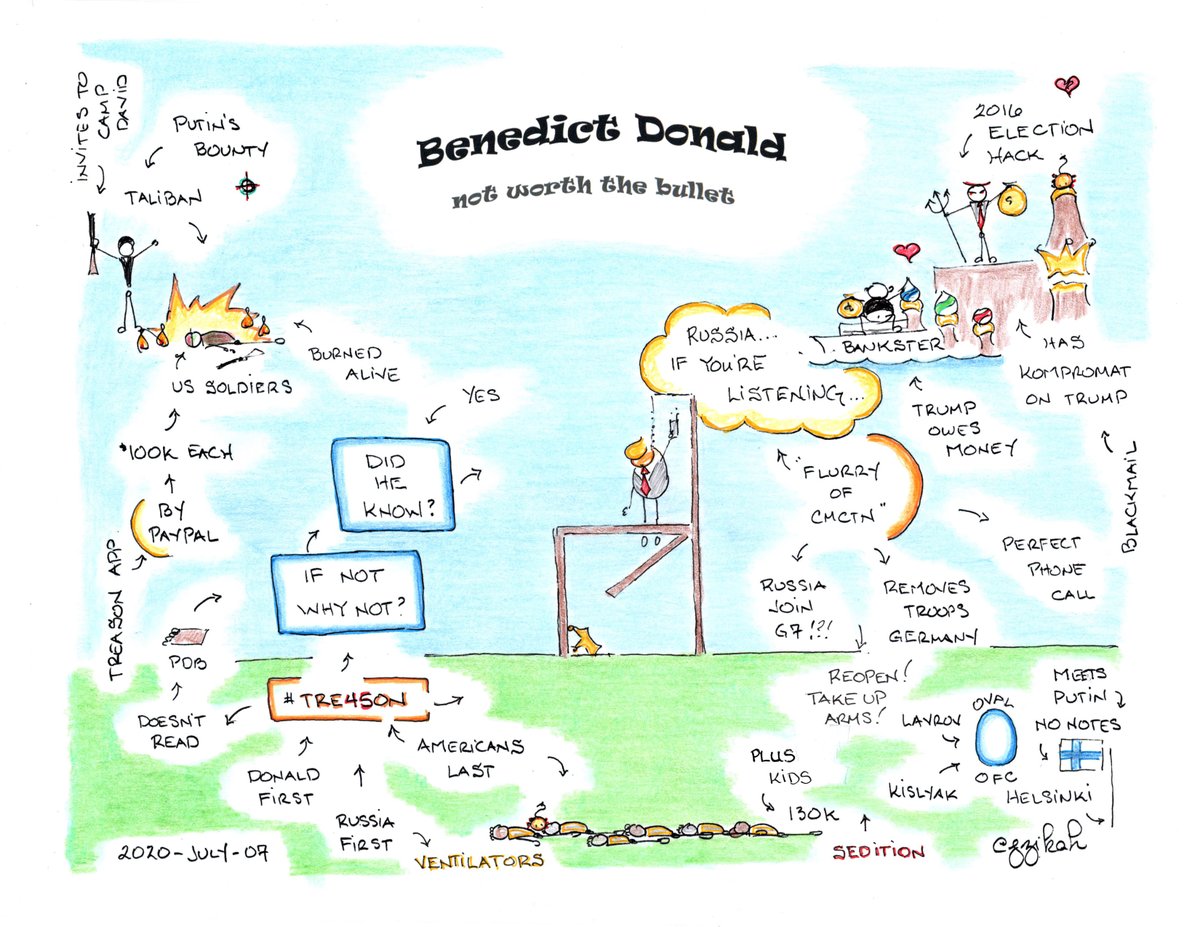 Benedict Donald
not worth the bullet
INVITES TO
CAMP
DAVID
PUTIN'S
BOUNTY
TALIBAN
BURNED
ALIVE
US SOLDIERS
$100K EACH
BY
PAYPAL
TREASON APP.
PDB
DOESN'T
READ
YES
DID
HE
KNOW?
IF NOT
WHY NOT?
#TRE45ON
DONALD
FIRST
RUSSIA
FIRST
AMERICANS
LAST
VENTILATORS
2020-JULY-07
2016
ELECTION
HACK
$
BANKSTER
RUSSIA...
IF YOU'RE
LISTENING...
HAS
KOMPROMAT
ON TRUMP
TRUMP
OWES
MONEY
BLACKMAIL
"FLURRY
OF
CMCTN"
PERFECT
PHONE
CALL
RUSSIA
JOIN
G7!?!
REMOVES
TROOPS
GERMANY
REOPEN!
TAKE UP
ARMS!
PLUS
KIDS
130K
SEDITION
LAVROV
KISLYAK
OVAL
OFC
MEETS
PUTIN
NO NOTES
HELSINKI